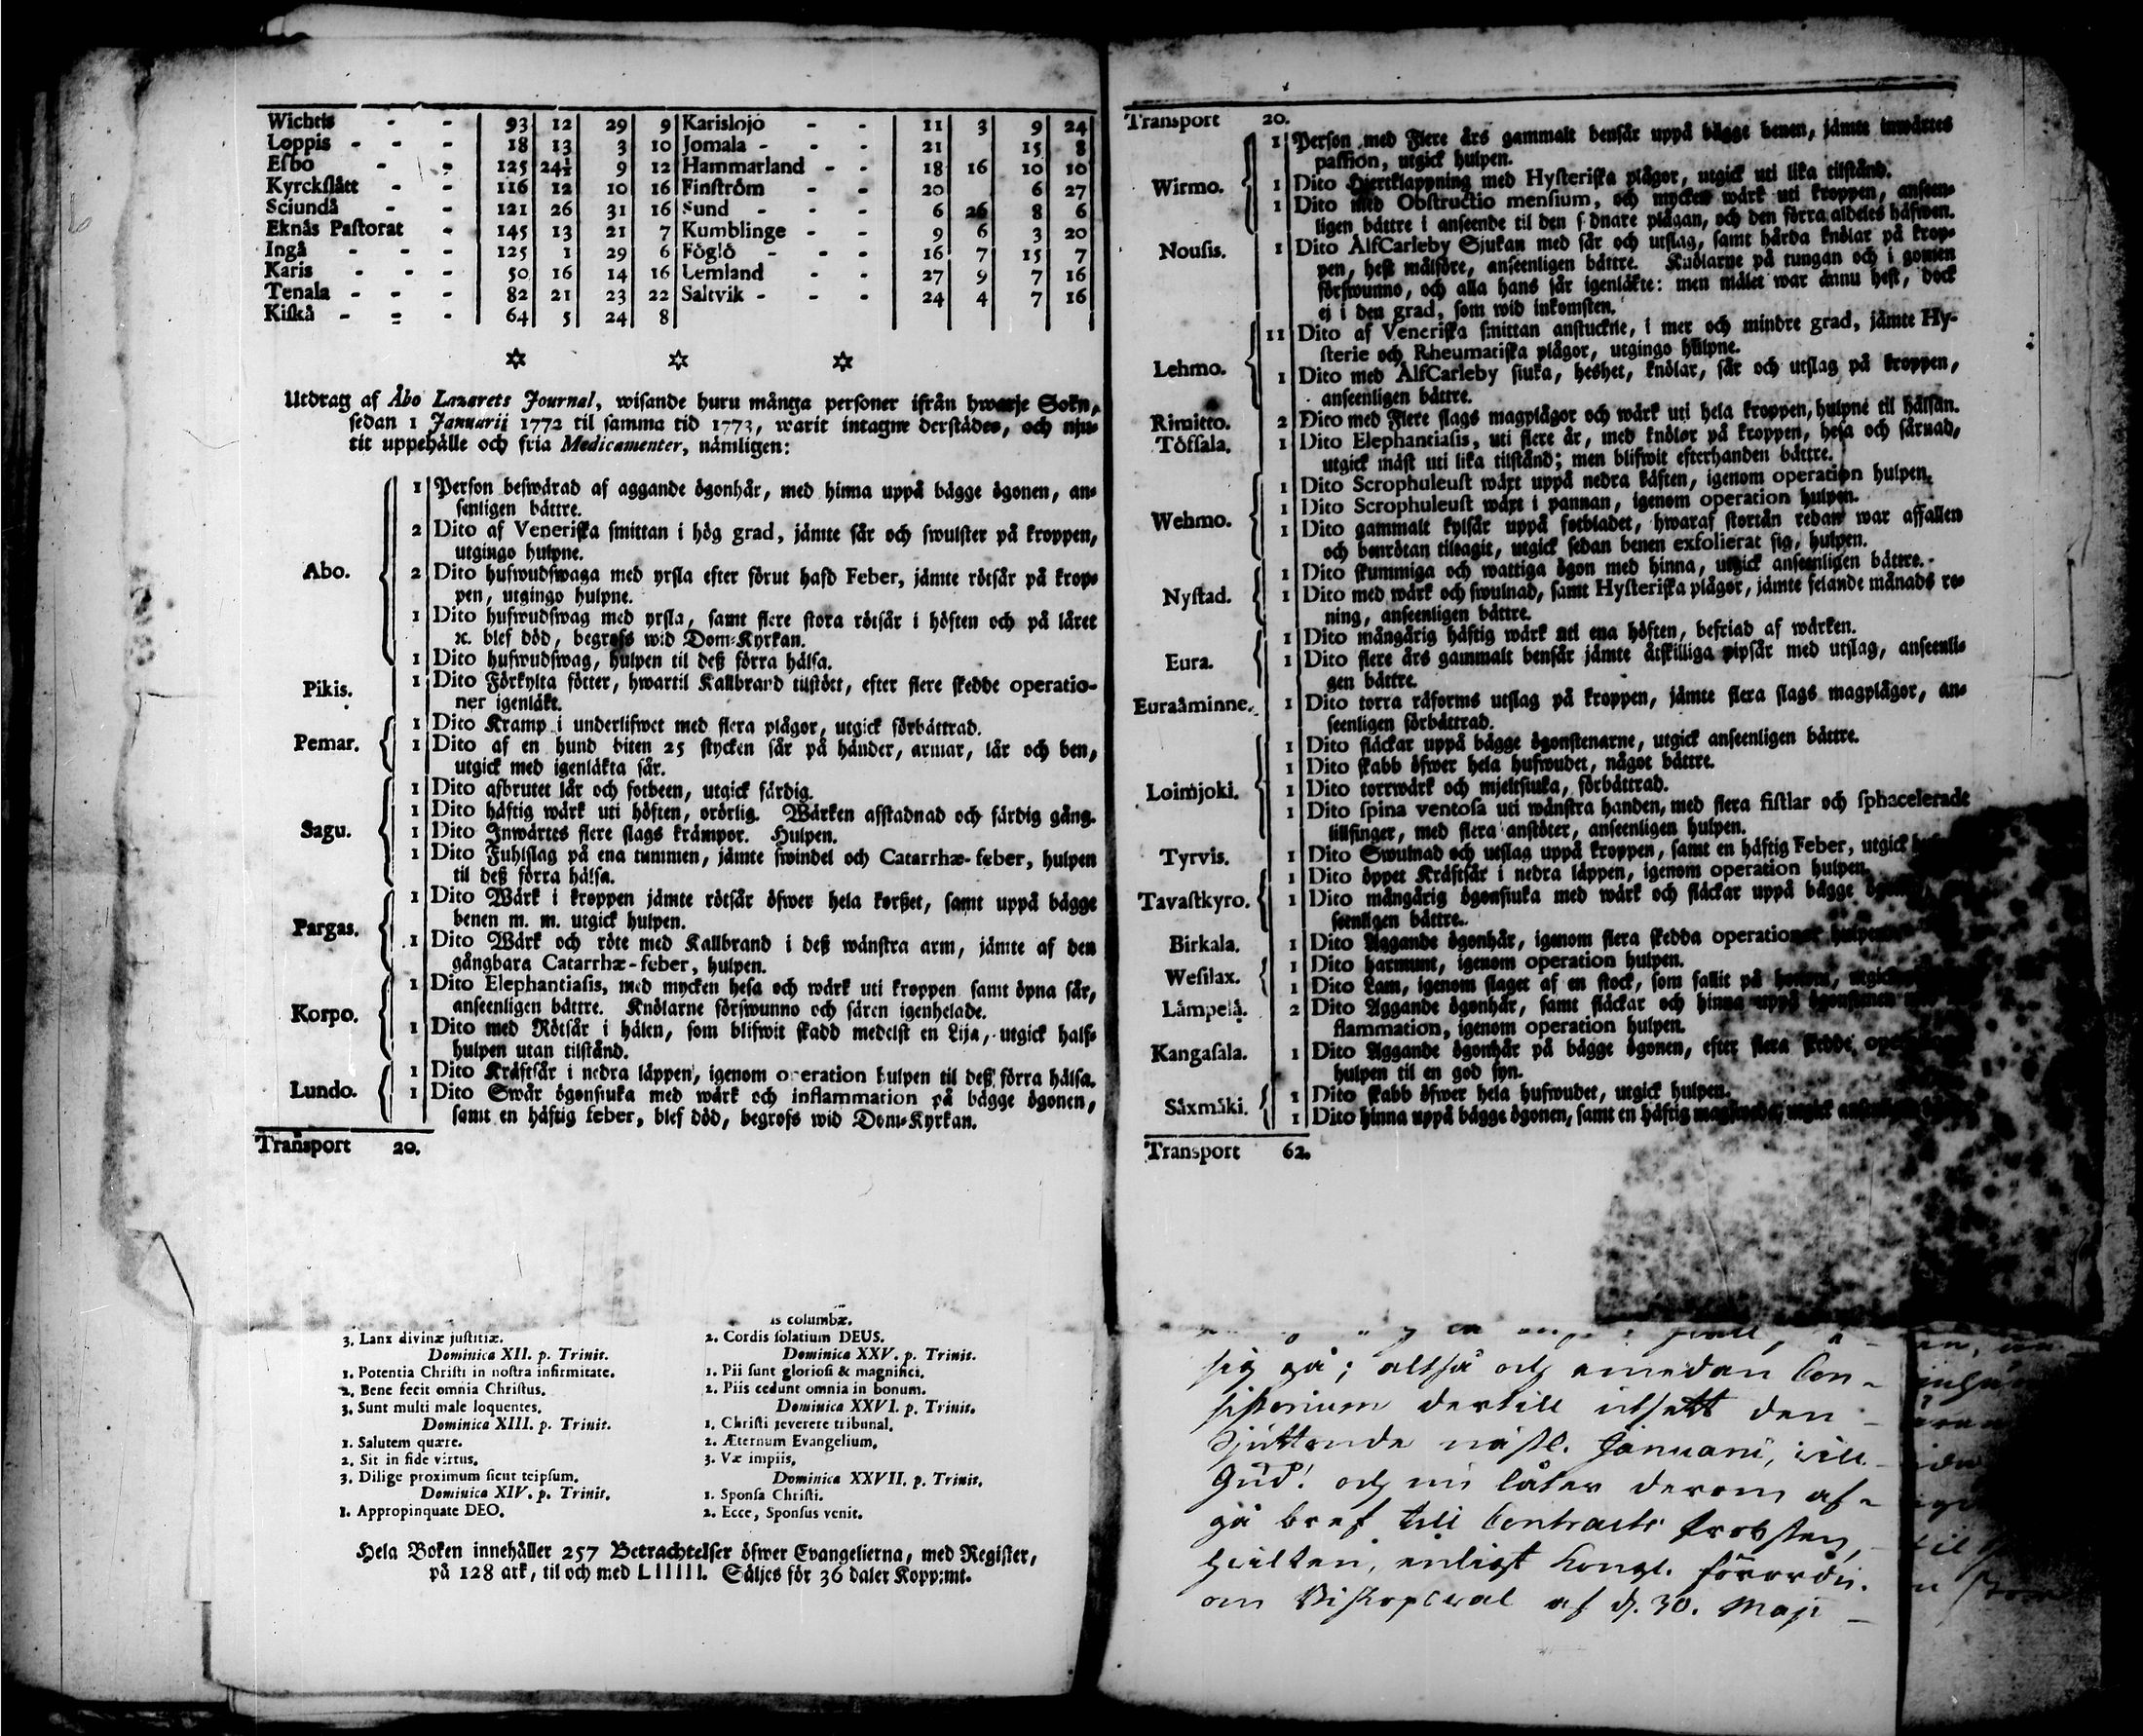 Wichtis - - 93 12 29 9 Karislojo - - 11 3 9 24
Loppis - - - 18 13 3 10 Jomala - - - 21 15 8
Esbo - - 125 24½ 9 12 Hammarland - - 18 16 10 10
Kyrckslått - - 116 12 10 16 Finström - - 20 6 27
Sciundå - - 121 26 31 16 Sund - - - 6 26 8 6
Eknås Pastorat - 145 13 21 7 Kumblinge - - 9 6 3 20
Ingå - - - 125 1 29 6 Föglö - - - 16 7 15 7
Karis - - - 50 16 14 16 Lemland - - 27 9 7 16
Tenala - - - 82 21 23 22 Saltvik - - - 24 4 7 16
Kiskå - - - 64 5 24 8
Utdrag af Åbo Lazarets Journal, wisande huru många personer ifrån hwarje Sokn,
sedan 1 Januarii 1772 til samma tid 1773, warit intagne derstädes, och nju-
tit uppehälle och fria Medicamenter, nämligen:
1 Person beswärad af aggande ögonhår, med hinna uppå bägge ögonen, an-
senligen bättre.
2 Dito af Veneriska smittan i hög grad, jämte sår och swulster på kroppen,
utgingo hulpne.
Abo. 2 Dito hufwudswaga med yrsla efter förut hafd Feber, jämte rötsår på krop-
pen, utgingo hulpne.
1 Dito hufwudswag med yrsla, samt flere stora rötsår i höften och på låret
ꝛc. blef död, begrofs wid Dom-Kyrkan.
1 Dito hufwudswag, hulpen til deß förra hälsa.
Pikis. 1 Dito Förkylta fötter, hwartil Kallbrand tilstött, efter flere skedde operatio-
ner igenläkt.
1 Dito Kramp i underlifwet med flera plågor, utgick förbättrad.
Pemar. 1 Dito af en hund biten 25 stycken sår på händer, armar, lår och ben,
utgick med igenläkta sår.
1 Dito afbrutet lår och fotbeen, utgick färdig.
1 Dito häftig wärk uti höften, orörlig. Wärken afstadnad och färdig gång.
Sagu. 1 Dito Inwärtes flere slags krämpor. Hulpen.
1 Dito Fuhlslag på ena tummen, jämte swindel och Catarrhæ-feber, hulpen
til deß förra hälsa.
1 Dito Wärk i kroppen jämte rötsår öfwer hela korßet, samt uppå bägge
benen m. m. utgick hulpen.
Pargas. 1 Dito Wärk och röte med Kallbrand i deß wänstra arm, jämte af den
gångbara Catarrhæ-feber, hulpen.
1 Dito Elephantiasis, med mycken hesa och wärk uti kroppen samt öpna sår,
anseenligen bättre. Knölarne förswunno och såren igenhelade.
Korpo. 1 Dito med Rötsår i hälen, som blifwit skadd medelst en Lija, utgick half-
hulpen utan tilstånd.
1 Dito Kräftsår i nedra läppen, igenom operation hulpen til deß förra hälsa.
Lundo. 1 Dito Swår ögonsiuka med wärk och inflammation på bägge ögonen,
samt en häftig feber, blef död, begrofs wid Dom-Kyrkan.
Transport 20.
is columbæ.
3. Lanx divinæ justitiæ.
Dominica XII. p. Trinit.
1. Potentia Christi in nostra infirmitate.
2. Bene fecit omnia Christus.
3. Sunt multi male loquentes.
Dominica XIII. p. Trinit.
1. Salutem quære.
2. Sit in fide virtus.
3. Dilige proximum sicut teipsum.
Dominica XIV. p. Trinit.
1. Appropinquate DEO.
2. Cordis solatium DEUS.
Dominica XXV. p. Trinit.
1. Pii sunt gloriosi & magnifici.
2. Piis cedunt omnia in bonum.
Dominica XXVI. p. Trinit.
1. Christi reverere tribunal.
2. Æternum Evangelium.
3. Væ impiis.
Dominica XXVII. p. Trinit.
1. Sponsa Christi.
2. Ecce, Sponsus venit.
Hela Boken innehåller 257 Betrachtelser öfwer Evangelierna, med Register,
på 128 ark, til och med Llllll. Säljes för 36 daler Kopp:mt.
Transport 20.
1 Person med Flere års gammalt bensår uppå bägge benen, jämte inwärtes
passion, utgick hulpen.
Wirmo. 1 Dito Hjertklappning med Hysteriska plågor, utgick uti lika tilstånd.
1 Dito med Obstructio mensium, och mycken wärk uti kroppen, anseen-
ligen bättre i anseende til den sednare plågan, och den förra aldeles häfwen.
Nousis. 1 Dito ÄlfCarleby Sjukan med sår och utslag, samt hårda knölar på krop-
pen, hest målföre, anseenligen bättre. Knölarne på tungan och i gomen
förswunno, och alla hans sår igenläkte: men målet war ännu hest, dock
ej i den grad, som wid inkomsten.
11 Dito af Veneriska smittan anstuckne, i mer och mindre grad, jämte Hy-
sterie och Rheumatiska plågor, utgingo hulpne.
Lehmo. 1 Dito med ÄlfCarleby siuka, heshet, knölar, sår och utslag på kroppen,
anseenligen bättre.
Rimitto. 2 Dito med Flere slags magplågor och wärk uti hela kroppen, hulpne til hälsan.
Töfsala. 1 Dito Elephantiasis, uti flere år, med knölor på kroppen, hesa och sårnad,
utgick mäst uti lika tilstånd; men blifwit efterhanden bättre.
1 Dito Scrophuleust wäxt uppå nedra käften, igenom operation hulpen.
1 Dito Scrophuleust wäxt i pannan, igenom operation hulpen.
Wehmo. 1 Dito gammalt kylsår uppå fotbladet, hwaraf stortån redan war affallen
och benrötan tiltagit, utgick sedan benen exfolierat sig, hulpen.
1 Dito skummiga och wattiga ögon med hinna, utgick anseenligen bättre.
Nystad. 1 Dito med wärk och swulnad, samt Hysteriska plågor, jämte felande månads re-
ning, anseenligen bättre.
1 Dito mångårig häftig wärk uti ena höften, befriad af wärken.
Eura. 1 Dito flere års gammalt bensår jämte åtskilliga pipsår med utslag, anseenli-
gen bättre.
Euraåminne. 1 Dito torra råforms utslag på kroppen, jämte flera slags magplågor, an-
seenligen förbättrad.
1 Dito fläckar uppå bägge ögonstenarne, utgick anseenligen bättre.
1 Dito skabb öfwer hela hufwudet, något bättre.
Loimjoki. 1 Dito torrwärk och mjeltsiuka, förbättrad.
1 Dito spina ventosa uti wänstra handen, med flera fistlar och sphacelerade
lillfinger, med flera anstöter, anseenligen hulpen.
Tyrvis. 1 Dito Swulnad och utslag uppå kroppen, samt en häftig Feber, utgick
1 Dito öppet Kräftsår i nedra läppen, igenom operation hulpen.
Tavastkyro. 1 Dito mångårig ögonsiuka med wärk och fläckar uppå bägge
seenligen bättre.
Birkala. 1 Dito Aggande ögonhår, igenom flera skedda operationer hulpen
1 Dito harmunt, igenom operation hulpen.
Wesilax. 1 Dito Lam, igenom slaget af en stock, som fallit på honom, utgick
Lämpelä. 2 Dito Aggande ögonhår, samt fläckar och hinna uppå ögonstenen
flammation, igenom operation hulpen.
Kangasala. 1 Dito Aggande ögonhår på bägge ögonen, efter flera skedde
hulpen til en god syn.
1 Dito skabb öfwer hela hufwudet, utgick hulpen.
Säxmäki. 1 Dito hinna uppå bägge ögonen, samt en häftig
Transport 62.
sig gå; altså och emedan Con-
sistorium dertill utsatt den
Sjuttonde näst. Januarii, will
Gud! och nu låter derom af-
gå bref till Contracts Probsten,
hwilken, enligt Kongl. förordn.
om Biskopswal af d. 30. Maji